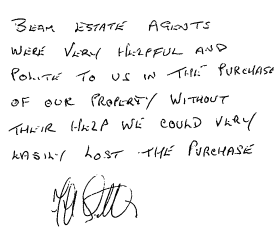 BEAM ESTATE AGENTS
WERE VERY HELPFUL AND
POLITE TO US IN THE PURCHASE
OF OUR PROPERTY WITHOUT
THEIR HELP WE COULD VERY
EASILY LOST THE PURCHASE